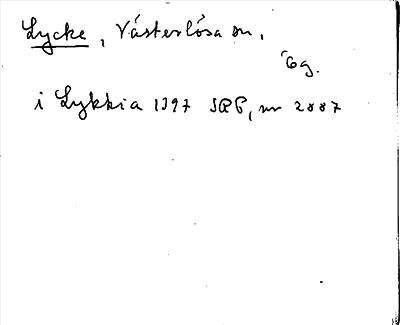 Lycke, Västerlösa sn.
Ög.
i Lykkia 1397 SRP, nr 2887